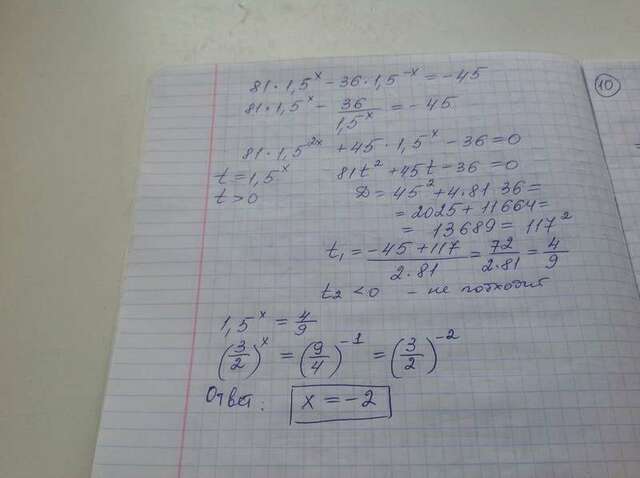 81·1,5ˣ − 36·1,5⁻ˣ = −45
81·1,5ˣ − 36/1,5ˣ = −45
81·1,5²ˣ + 45·1,5ˣ − 36 = 0
t = 1,5ˣ 81t² + 45t − 36 = 0
t > 0 D = 45² + 4·81·36 =
= 2025 + 11664 =
= 13689 = 117²
t₁ = (−45 + 117)/(2·81) = 72/(2·81) = 4/9
t₂ < 0 – не подходит
1,5ˣ = 4/9
(3/2)ˣ = (9/4)⁻¹ = (3/2)⁻²
Ответ: x = −2
10